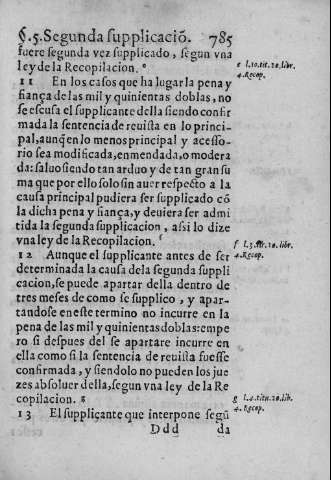 §.5. Segunda supplicaciō. 785
fuere segunda vez supplicado, segun vna
ley de la Recopilacion. e
e l.10.tit.20.libr.
4. Recop.
11 En los casos que ha lugar la pena y
fiança de las mil y quinientas doblas, no
se escusa el supplicante della siendo confir
mada la sentencia de reuista en lo princi-
pal, aunq̃ en lo menos principal y acesso-
rio sea modificada, enmendada, o modera
da: saluo siendo tan arduo y de tan gran su
ma que por ello solo sin auer respecto a la
causa principal pudiera ser supplicado cō
la dicha pena y fiança, y deuiera ser admi
tida la segunda supplicacion, assi lo dize
vna ley de la Recopilacion. f
f l.3.tit.20.libr.
4. Recop.
12 Aunque el supplicante antes de ser
determinada la causa dela segunda suppli
cacion, se puede apartar della dentro de
tres meses de como se supplico, y apar-
tandose en este termino no incurre en la
pena de las mil y quinientas doblas: empe
ro si despues del se apartare incurre en
ella como si la sentencia de reuista fuesse
confirmada, y siendolo no pueden los jue
zes absoluer della, segun vna ley de la Re
copilacion. g
g l.4.titu.20.lib.
4. Recop.
13 El supplicante que interpone segū
Ddd da